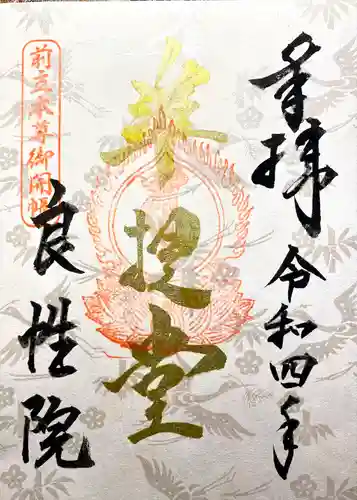 奉拝
令和四年
菩提堂
前立本尊御開帳
良性院